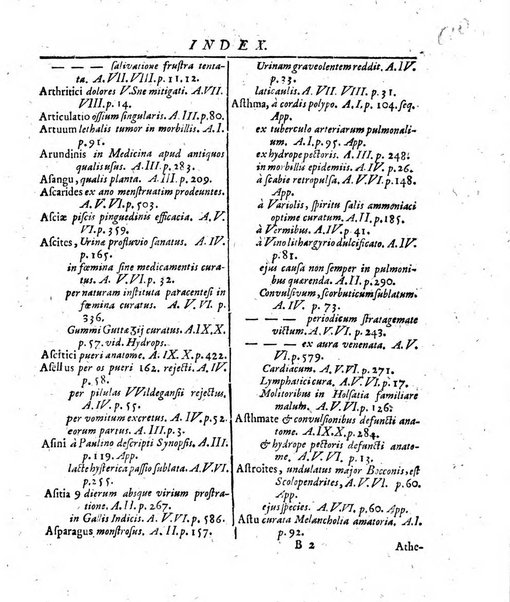 INDEX.
— — — salivatione frustra tenta-
ta. A. VII. VIII. p. 11. 12.
Arthritici dolores VSne mitigati. A. VII.
VIII. p. 14.
Articulatio ossium singularis. A. III. p. 80.
Artuum lethalis tumor in morbillis. A. I.
p. 91.
Arundinis in Medicina apud antiquos
qualis usus. A. III. p. 283.
Asangu, qualis planta. A. III. p. 209.
Ascarides ex ano menstruatim prodeuntes.
A. V. VI. p. 503.
Asciæ piscis pinguedinis efficacia. A. V.
VI. p. 359.
Ascites, Urinæ profluvio sanatus. A. IV.
p. 165.
in fœmina sine medicamentis cura-
tus. A. V. VI. p. 32.
per naturam instituta paracentesi in
fæmina curatus. A. V. VI. p.
336.
Gummi Guttæ ʒij curatus. A. IX. X.
p. 57. vid. Hydrops.
Ascitici pueri anatome. A. IX. X. p. 422.
Asellus per os pueri 162. rejecti. A. IV.
p. 58.
per pilulas VVildegansii rejectus.
A. IV. p. 55.
per vomitum excretus. A. IV. p. 52.
eorum partus. A. III. p. 3.
Asini à Paulino descripti Synopsis. A. III.
p. 119. App.
lacte hysterica passio sublata. A. V. VI.
p. 255.
Asitia 9 dierum absque virium prostra-
tione. A. II. p. 267.
in Gallis Indicis. A. V. VI. p. 586.
Asparagus monstrosus. A. II. p. 157.
Urinam graveolentem reddit. A. IV.
p. 33.
laticaulis. A. VI. p. 21.
Asthma, à cordis polypo. A. I. p. 104. seq.
App.
ex tuberculo arteriarum pulmonali-
um. A. I. p. 95. App.
ex hydrope pectoris. A. III. p. 248.
in morbillis epidemiis. A. IV. p. 26.
à scabie retropulsa. A. V. VI. p. 148.
App.
à Variolis, spiritu salis ammoniaci
optime curatum. A. II. p. 185.
à Vermibus. A. IV. p. 41.
à Vino lithargyrio dulcificato. A. IV.
p. 81.
ejus causa non semper in pulmoni-
bus quærenda. A. II. p. 290.
Convulsivum, scorbuticum sublatum.
A. IV. p. 73.
— — — periodicum stratagemate
victum. A. V. VI. p. 243.
— — — ex aura venenata. A. V.
VI. p. 579.
Cardiacum. A. V. VI. p. 271.
Lympharici cura, A. V. VI. p. 17.
Molitoribus in Holsatia familiare
malum. A. V. VI. p. 126.
Asthmate & convulsionibus defuncti ana-
tome. A. IX. X. p. 284.
& hydrope pectoris defuncti anato-
me. A. V. VI. p. 13.
Astroites, undulatus major Bocconis, est
Scolopendrites, A. V. VI. p. 60.
App.
ejus species. A. V. VI. p. 60. App.
Astu curata Melancholia amatoria. A. I.
p. 92.
B 2
Athe-